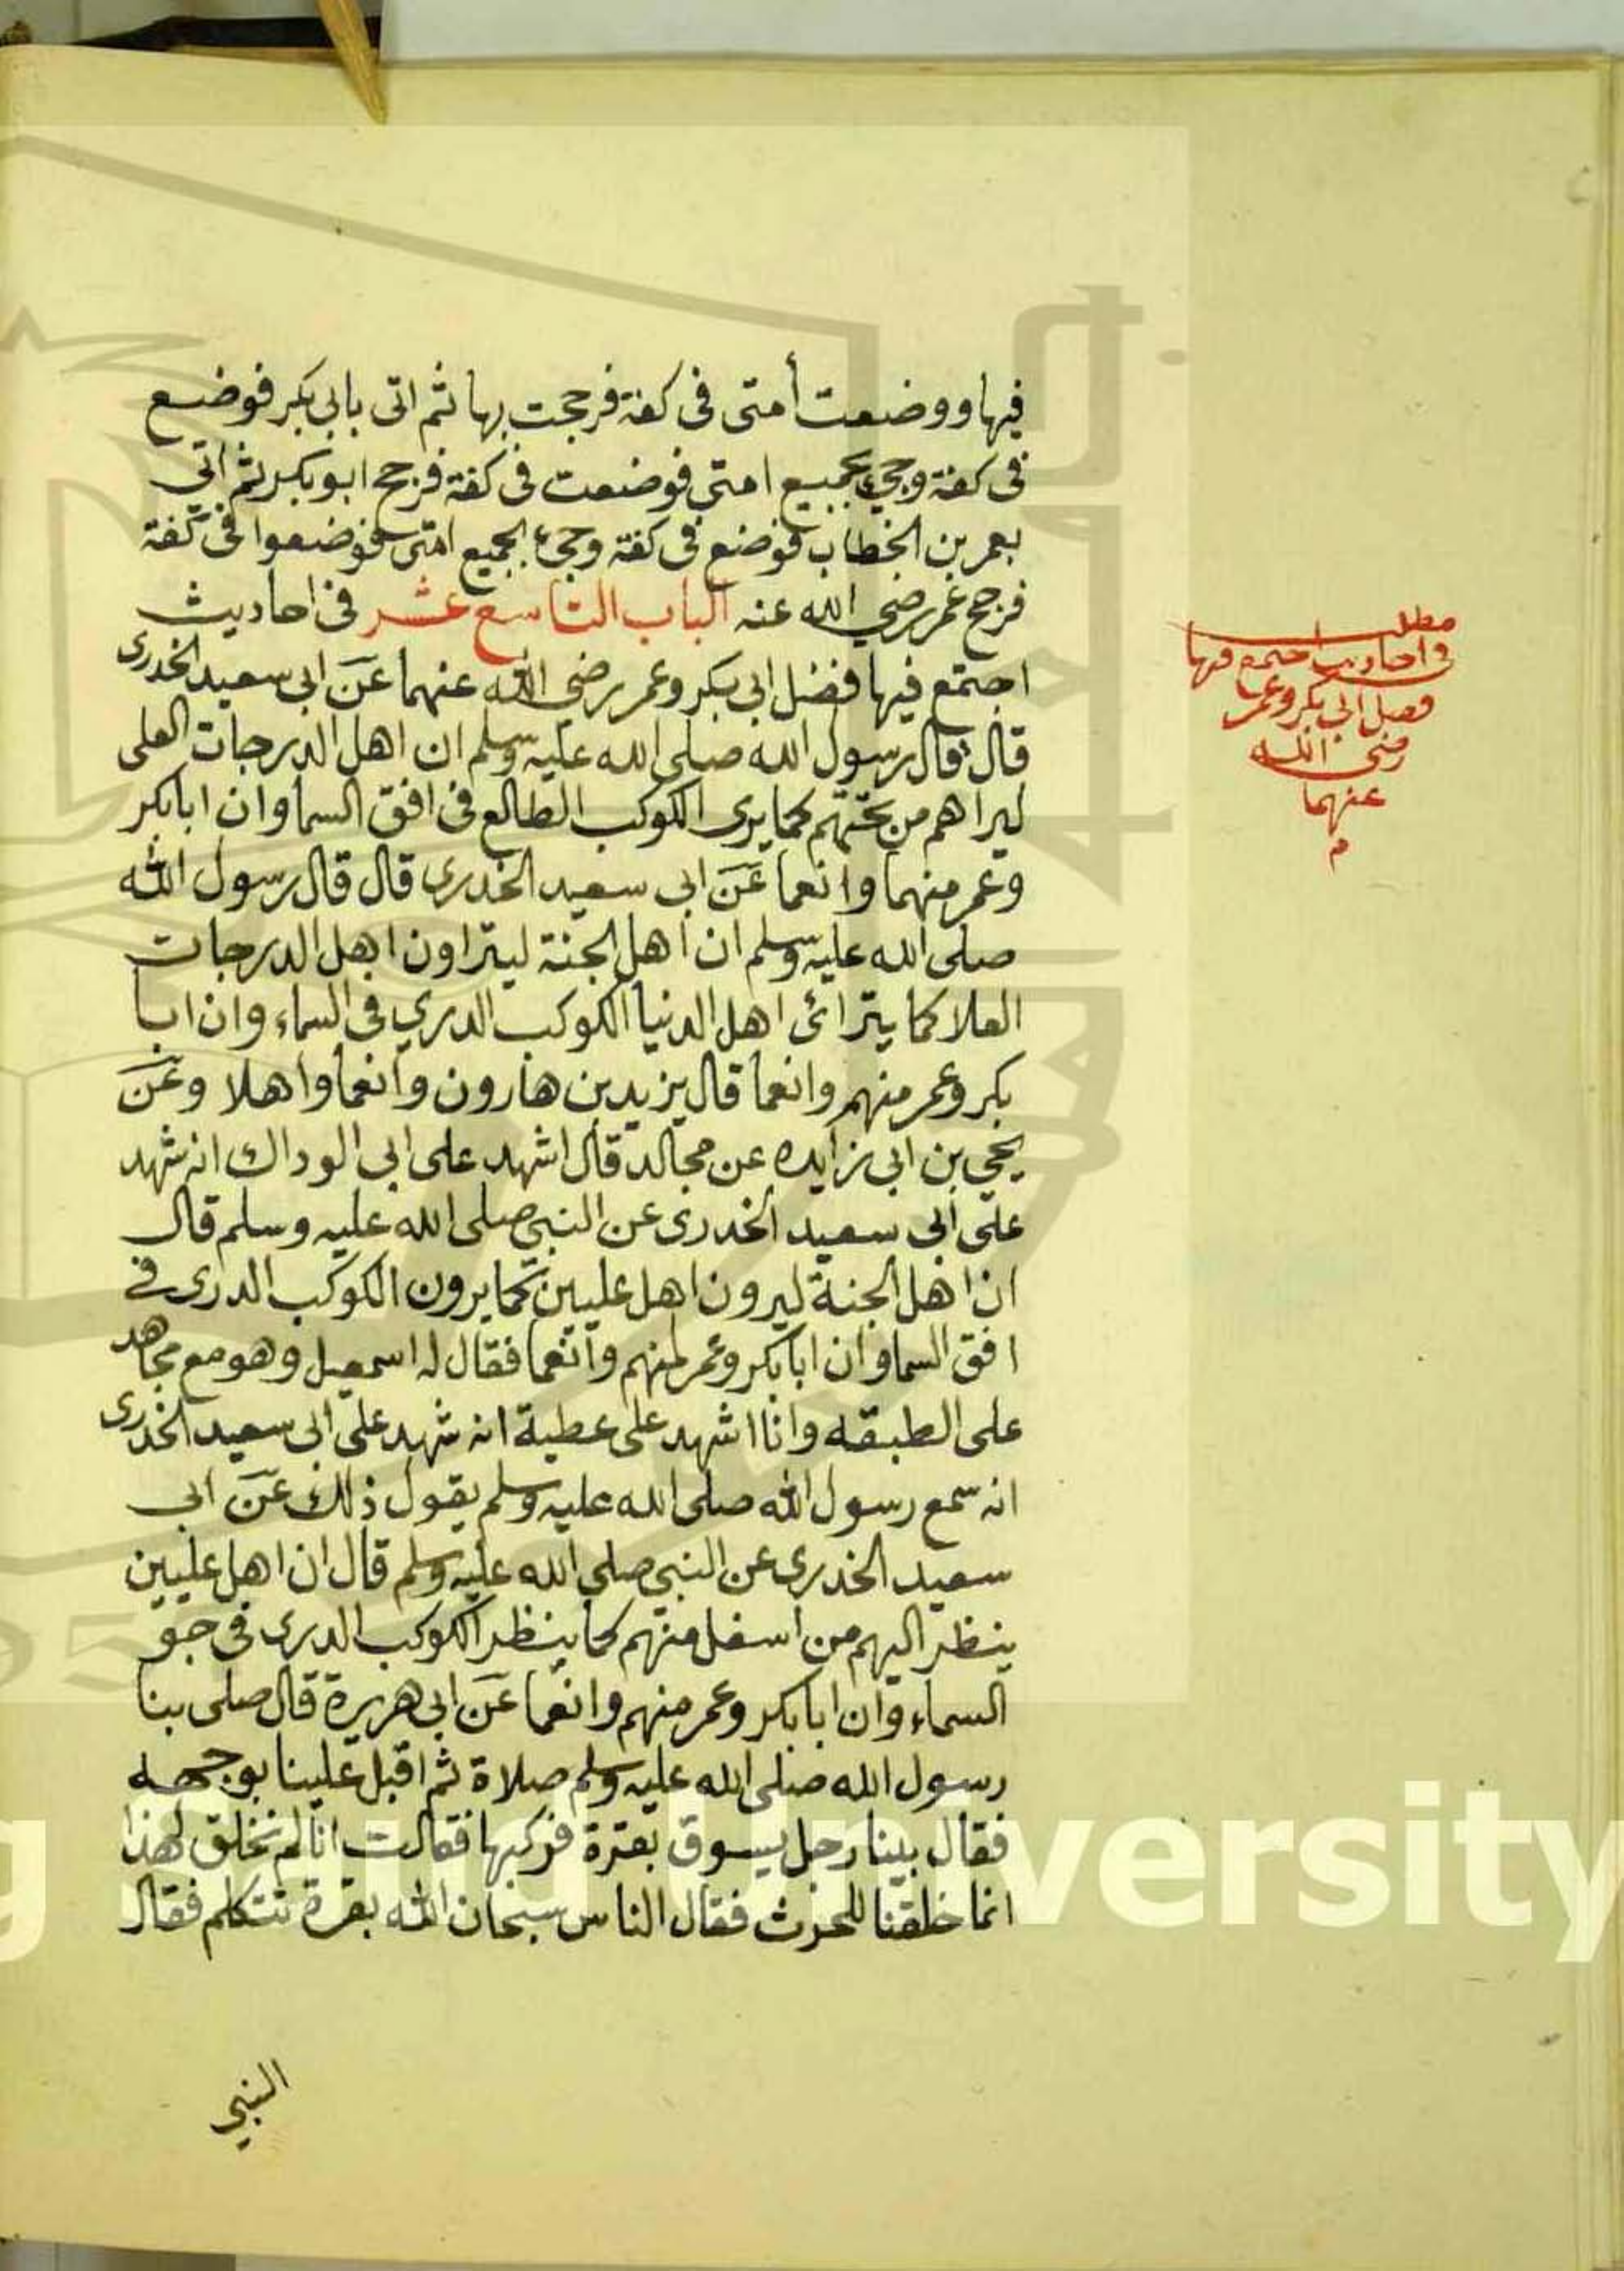 فيها ووضعت أمتى فى كفة فرجحت بها ثم اتى بابى بكر فوضع
فى كفة وجىء بجميع امتى فوضعت فى كفة فرجح ابو بكر ثم اتى
بعمر بن الخطاب فوضع فى كفة وجىء بجميع امتى فوضعوا فى كفة
فرجح عمر رضي الله عنه الباب التاسع عشر فى احاديث
اجتمع فيها فضل ابى بكر وعمر رضى الله عنهما عن ابى سعيد الخدرى
قال قال رسول الله صلى الله عليه وسلم ان اهل الدرجات العلى
ليراهم من تحتهم كما يرى الكوكب الطالع فى افق السما وان ابا بكر
وعمر منهما وانعما عن ابى سعيد الخدرى قال قال رسول الله
صلى الله عليه وسلم ان اهل الجنة ليتراون اهل الدرجات
العلا كما يترائ اهل الدنيا الكوكب الدري فى السماء وان ابا
بكر وعمر منهم وانعما قال يزيد بن هارون وانعما واهلا وعن
يحيي بن ابى زايده عن مجالد قال اشهد على ابى الوداك انه شهد
على ابى سعيد الخدرى عن النبى صلى الله عليه وسلم قال
ان اهل الجنة ليرون اهل عليين كما يرون الكوكب الدرى فى
افق السما وان ابا بكر وعمر لمنهم وانعما فقال له اسمعيل وهو مع مجاهد
على الطبقه وانا اشهد على عطية انه شهد على ابى سعيد الخدرى
انه سمع رسول الله صلى الله عليه وسلم يقول ذلك عن ابى
سعيد الخدرى عن النبى صلى الله عليه وسلم قال ان اهل عليين
ينظر اليهم من اسفل منهم كما ينظر الكوكب الدرى فى جو
السماء وان ابا بكر وعمر منهم وانعما عن ابى هريرة قال صلى بنا
رسول الله صلى الله عليه وسلم صلاة ثم اقبل علينا بوجهه
فقال بينا رجل يسوق بقرة فركبها فقالت انا لم نخلق لهذا
انما خلقنا للحرث فقال الناس سبحان الله بقرة تتكلم فقال
النبي
مطلب
فى احاديث اجتمع فيها
فضل ابى بكر وعمر
رضى الله
عنهما
م
University